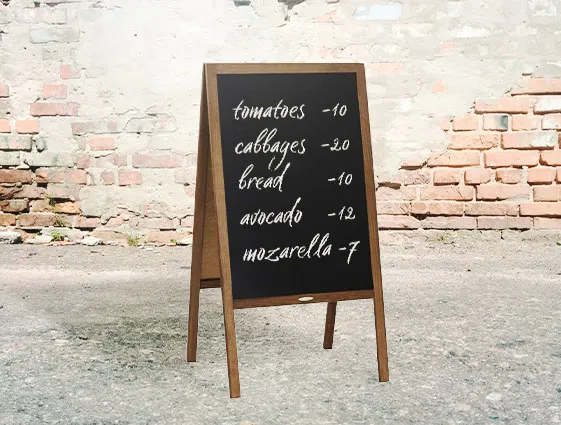 tomatoes -10
cabbages -20
bread -10
avocado -12
mozarella -7